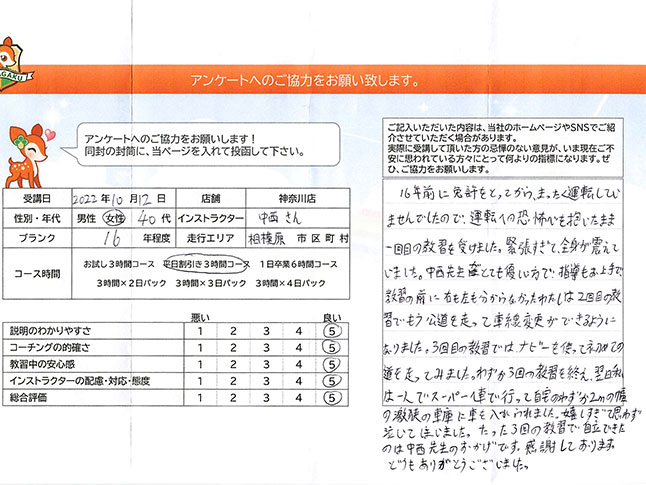 GAKU
アンケートへのご協力をお願い致します。
アンケートへのご協力をお願いします！
同封の封筒に、当ページを入れて投函して下さい。
受講日 2022年10月12日 店舗 神奈川店
性別・年代 男性 女性 40代 インストラクター 中西さん
ブランク 16 年程度 走行エリア 相模原 市区町村
コース時間 お試し3時間コース 平日割引き3時間コース 1日卒業6時間コース
3時間×2日パック 3時間×3日パック 3時間×4日パック
悪い 良い
説明のわかりやすさ 1 2 3 4 5
コーチングの的確さ 1 2 3 4 5
教習中の安心感 1 2 3 4 5
インストラクターの配慮・対応・態度 1 2 3 4 5
総合評価 1 2 3 4 5
ご記入いただいた内容は、当社のホームページやSNSでご紹
介させていただく場合があります。
実際に受講して頂いた方の忌憚のない意見が、いま現在ご不
安に思われている方々にとって何よりの指標になります。ぜ
ひ、ご協力をお願いします。
16年前に免許をとってから、まったく運転してい
ませんでしたので、運転への恐怖心を抱いたまま
一回目の教習を受けました。緊張すぎて、全身が震えて
いました。中西先生はとても優しい方で、指導もお上手で
教習の前に右も左も分からなかったわたしは2回目の教
習でもう公道を走って車線変更ができるように
なりました。3回目の教習ではナビーを使って初めての
道を走ってみました。わずか3回の教習を終え、翌日私
は一人でスーパーへ車で行って自宅のわずか2mの幅
の激狭の車庫に車を入れられました。嬉しすぎて思わず
泣いてしまいました。たった3回の教習で自立できた
のは中西先生のおかげです。感謝しております。
どうもありがとうございました。